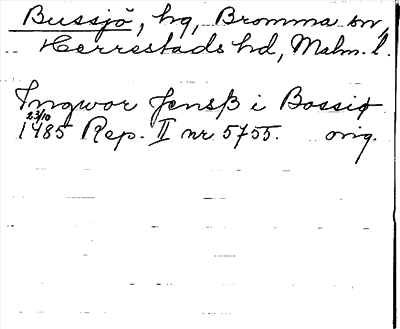 Bussjö, hg, Bromma sn,
Herrestads hd, Malm. l.
Ingwor Jensß i Bossiø
23/10
1485 Rep. II nr 5755. orig.